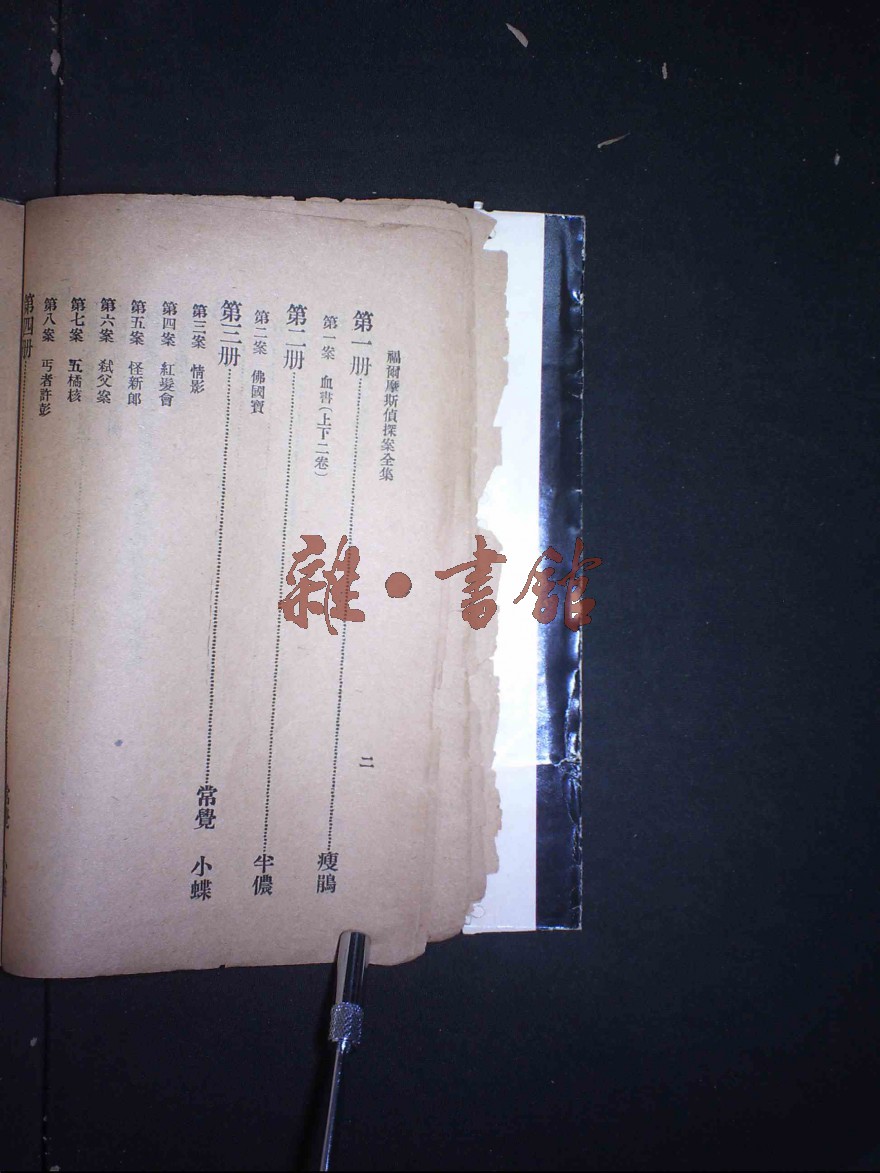 福爾摩斯偵探案全集
二
第一册……瘦鵑
第一案 血書(上下二卷)
第二册……半儂
第二案 佛國寶
第三册……常覺 小蝶
第三案 情影
第四案 紅髮會
第五案 怪新郎
第六案 弒父案
第七案 五橘核
第八案 丐者許彭
第四册……
雜·書館